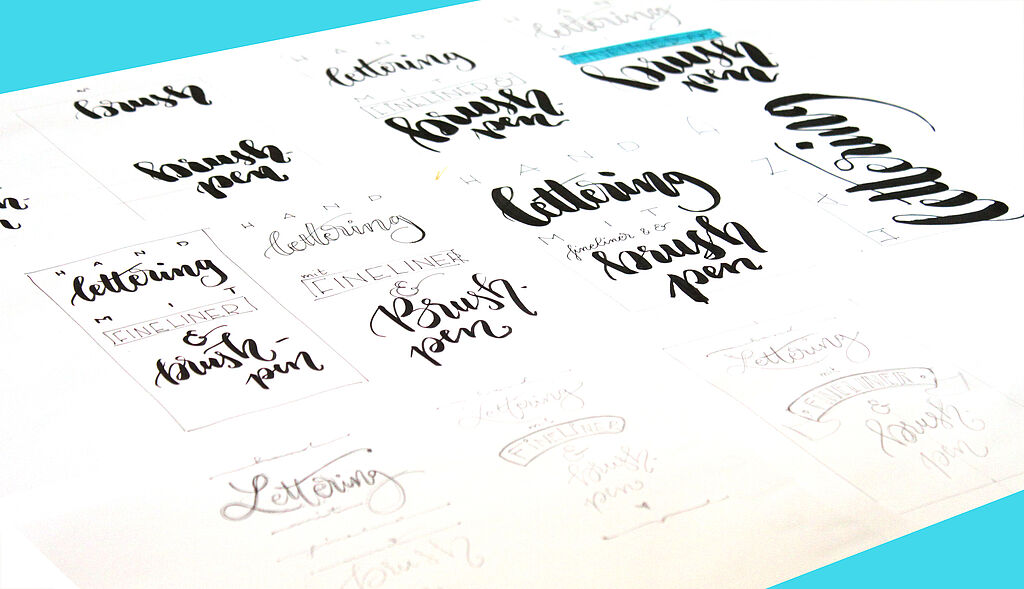 brush
brush-
pen
HAND
lettering
MIT
FINELINER &
brush-
pen
HAND
lettering
brush
pen
HAND
lettering
MIT
FINELINER
&
brush-
pen
HAND
lettering
mit
FINELINER
&
Brush-
pen
HAND
lettering
MIT
fineliner &
brush
pen
lettering
MIT
hand
Lettering
mit
Lettering
mit
FINELINER
&
Brush
pen
Lettering
mit
FINELINER
&
Brush-
pen